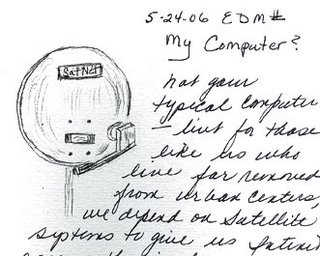 5-24-06 EDM#
My Computer?
SatNet
not your
typical computer
- but for those
like us who
live far removed
from urban centers,
we depend on satellite
systems to give us